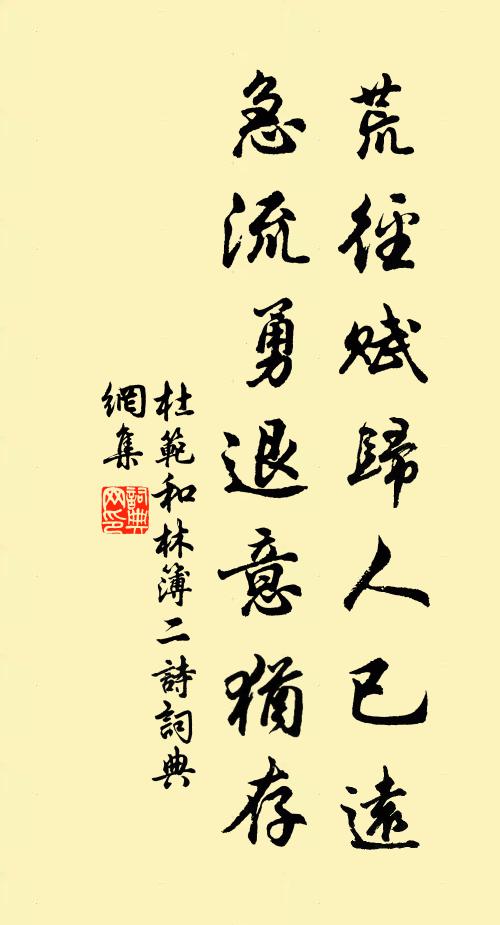 荒徑賦歸人已遠
急流勇退意猶存
杜範和林簿二詩詞典
網集
詞典
网印